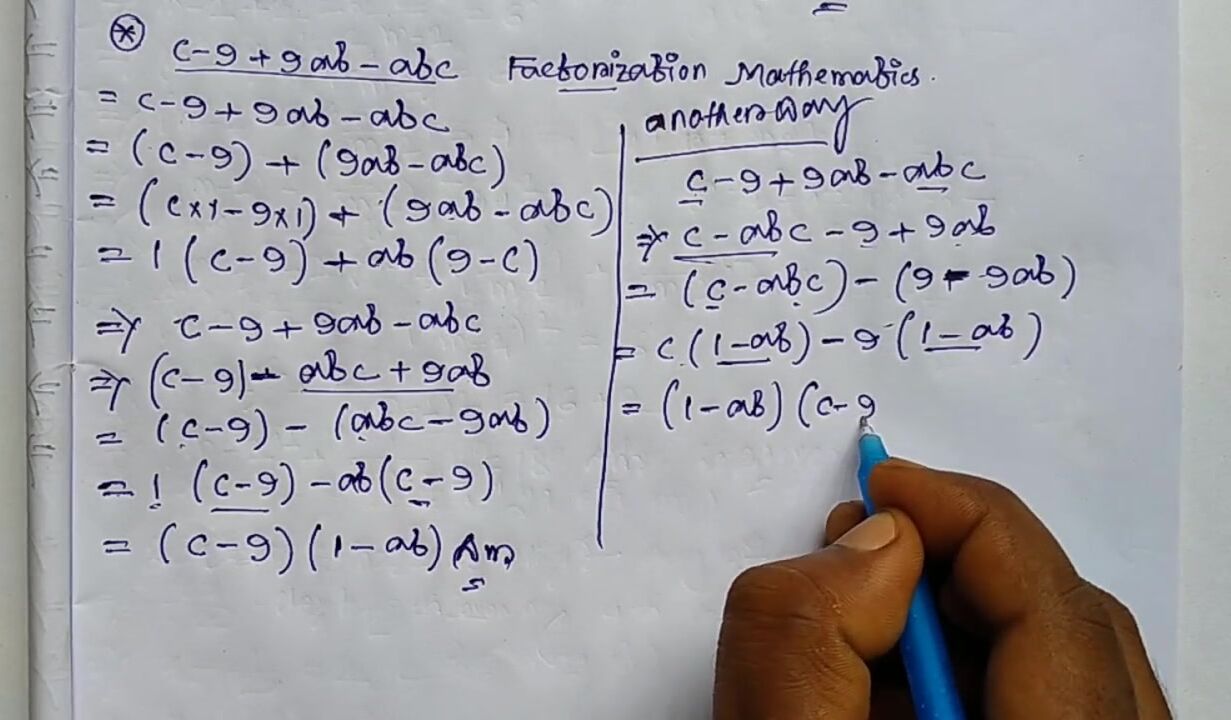 * c-9+9ab-abc Factorization Mathematics.
= c-9+9ab-abc
= (c-9) + (9ab-abc)
= (c×1-9×1) + (9ab-abc)
= 1(c-9)+ab(9-c)
⇒ c-9+9ab-abc
⇒ (c-9)-abc+9ab
= (c-9) - (abc-9ab)
= 1(c-9)-ab(c-9)
= (c-9)(1-ab) Ans
another way
c-9+9ab-abc
⇒ c-abc-9+9ab
= (c-abc)-(9-9ab)
= c(1-ab)-9(1-ab)
= (1-ab)(c-9